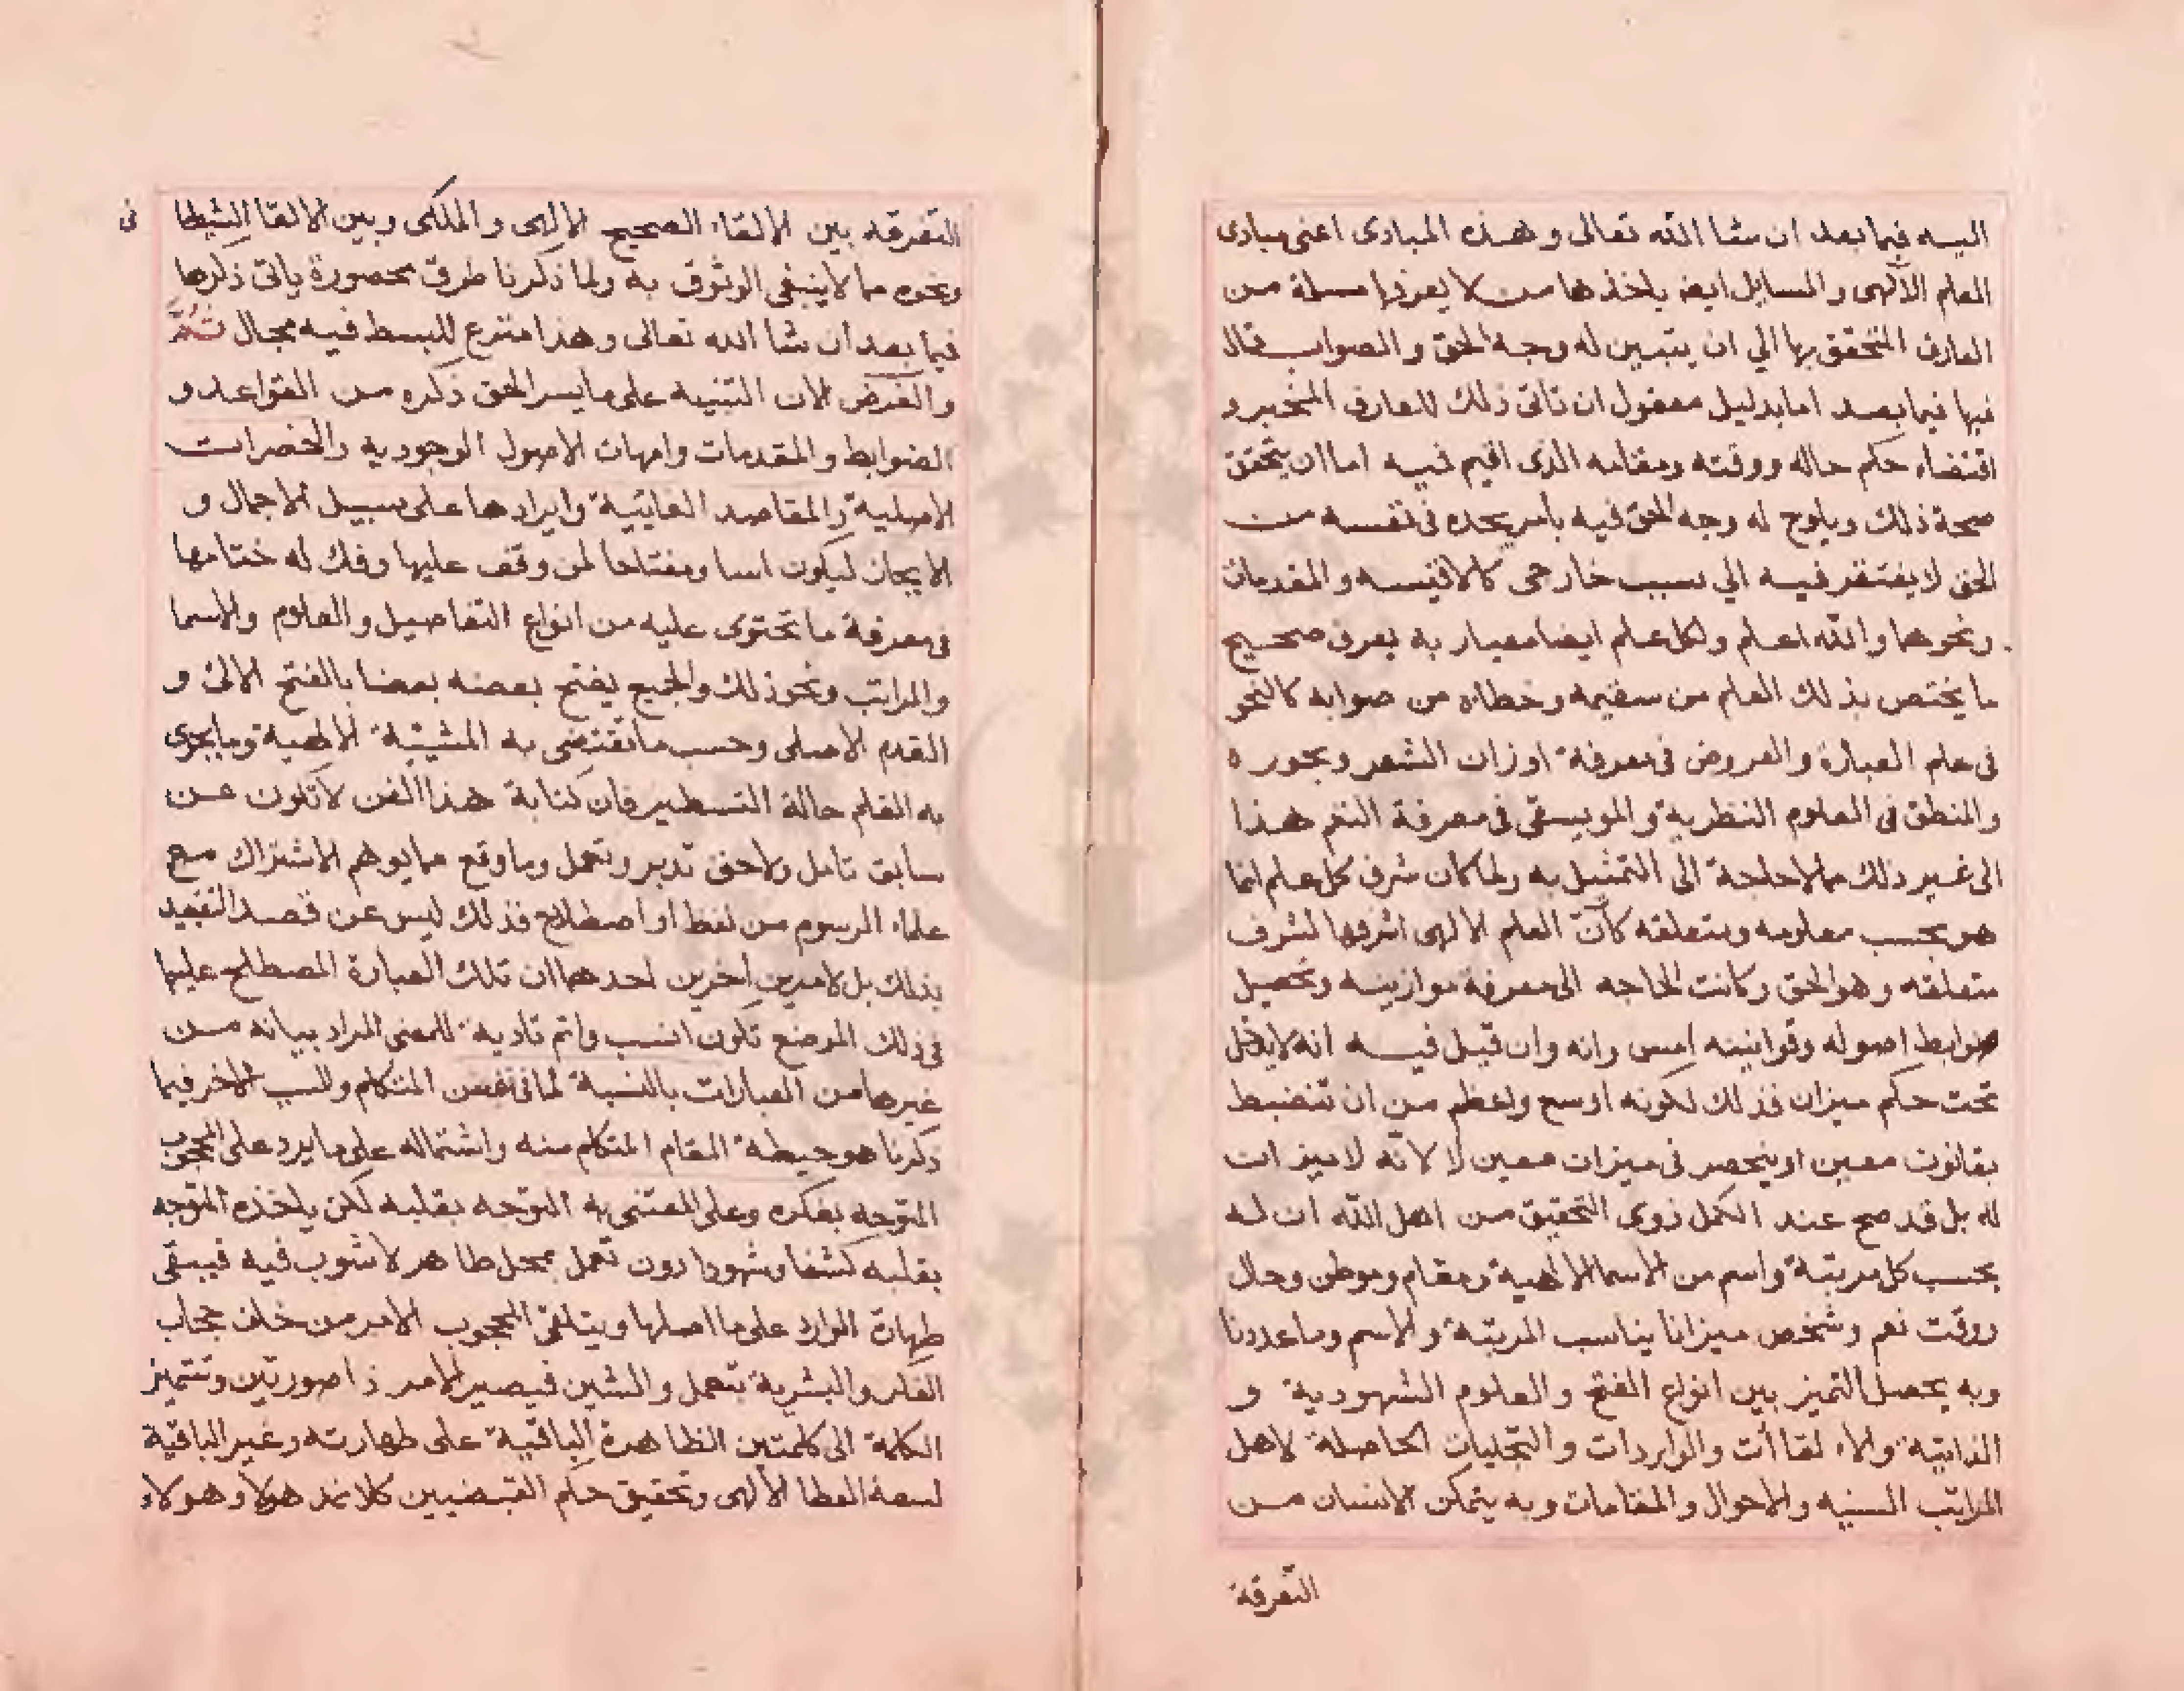 اليه فيما بعد ان شا الله تعالى وهذه المبادى اعنى مبادى
العلم الآلهى والمسايل ايضا ياخذها من لا يعرفها مسلمة من
العارف المتحقق بها الي ان يتبين له وجه الحق والصواب
فيها فيما بعد اما بدليل معقول ان تاتى ذلك للعارف المخبر و
اقتضاء حكم حاله ووقته ومقامه الذى اقيم فيه اما ان يتحقق
صحة ذلك ويلوح له وجه الحق فيه بامر يجده فى نفسه من
الحق لا يفتقر فيه الي سبب خارجى كالاقيسه والمقدمات
ونحوها والله اعلم ولكل علم ايضا معيار به يعرف صحيح
ما يختص بذلك العلم من سقيمه وخطاه من صوابه كالنحو
فى علم العبارة والعروض فى معرفة اوزان الشعر وبحوره
والمنطق فى العلوم النظرية والموسيقى فى معرفة النغم هذا
الى غير ذلك مما لا حاجة الى التمثيل به ولما كان شرف كل علم انما
هو بحسب معلومه ومتعلقه كان العلم الالهى اشرفها لشرف
متعلقه وهو الحق وكانت الحاجه الى معرفة موازينه وتحصيل
ضوابط اصوله وقوانينه امس وانه وان قيل فيه انه لا يدخل
تحت حكم ميزان فذلك لكونه اوسع واعظم من ان تنضبط
بقانون معين او ينحصر فى ميزان معين لا لانه لا ميزان
له بل قد صح عند الكمل ذوى التحقيق من اهل الله ان له
بحسب كل مرتبة واسم من الاسما الالهية ومقام وموطن وحال
ووقت نعم وشخص ميزانا يناسب المرتبة والاسم وما عددنا
وبه يحصل التميز بين انواع الفتح والعلوم الشهودية و
الذاتية والالقاآت والواردات والتجليات الحاصلة لاهل
المراتب السنيه والاحوال والمقامات وبه يتمكن الانسان من
التفرقة
التفرقه بين الالقاء الصحيح الالهى والملكى وبين الالقا الشيطا
نى
ونحوه مما لا ينبغى الوثوق به ولما ذكرنا طرق محصورة ياتى ذكرها
فيما بعد ان شا الله تعالى وهذا متنزع للبسط فيه مجال ثم
والغرض الان التنبيه على ما يسر الحق ذكره من القواعد و
الضوابط والمقدمات وامهات الاصول الوجوديه والحضرات
الاصلية والمقاصد الغايية وايرادها على سبيل الاجمال و
الايجاز ليكون اسا ومفتاحا لمن وقف عليها وفك له ختامها
فى معرفة ما تحتوى عليه من انواع التفاصيل والعلوم والاسما
والمراتب ونحو ذلك والجميع يفتح بعضه بعضا بالفتح الالى و
القدم الاصلى وحسب ما تقتضى به المشيئة الالهية وما يجرى
به القلم حالة التسطير فان كتابة هذا الفن لا تكون عن
سابق تامل ولاحق تدبر وتعمل وما وقع مما يوهم الاشتراك مع
علماء الرسوم من لفظ او اصطلاح فذلك ليس عن قصد التقيد
بذلك بل لامرين اخرين احدهما ان تلك العبارة المصطلح عليها
فى ذلك الموضع تكون انسب واتم تادية للمعنى المراد بيانه من
غيرها من العبارات بالنسبة لما فى نفس المتكلم والسبب الاخر فيما
ذكرنا هو حيطة المقام المتكلم منه واشتماله على ما يرد على المحجوب
المتوجه بفكره وعلى المعتنى به المتوجه بقلبه لكن ياخذه المتوجه
بقلبه كشفا وشهودا دون تعمل بمحل طاهر لا شوب فيه فيبقى
طهارة الوارد على ما اصلها ويتلقى المحجوب الامر من خلف حجاب
الفكر والبشرية بتعمل والشين فيصير الامر ذا صورتين وتتميز
الكلمة الى كلمتين الظاهرة الباقية على طهارته وغير الباقية
لسعة العطا الالهى وتحقيق حكم القبضتين كلا نمد هولا وهولاء